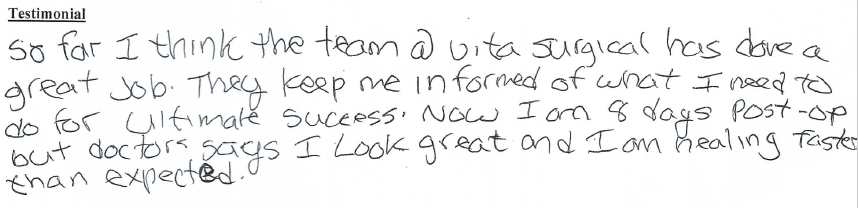 Testimonial
So far I think the team @ vita surgical has done a
great Job. They keep me informed of what I need to
do for Ultimate success. Now I am 8 days Post-op
but doctors says I Look great and I am healing faster
than expected.